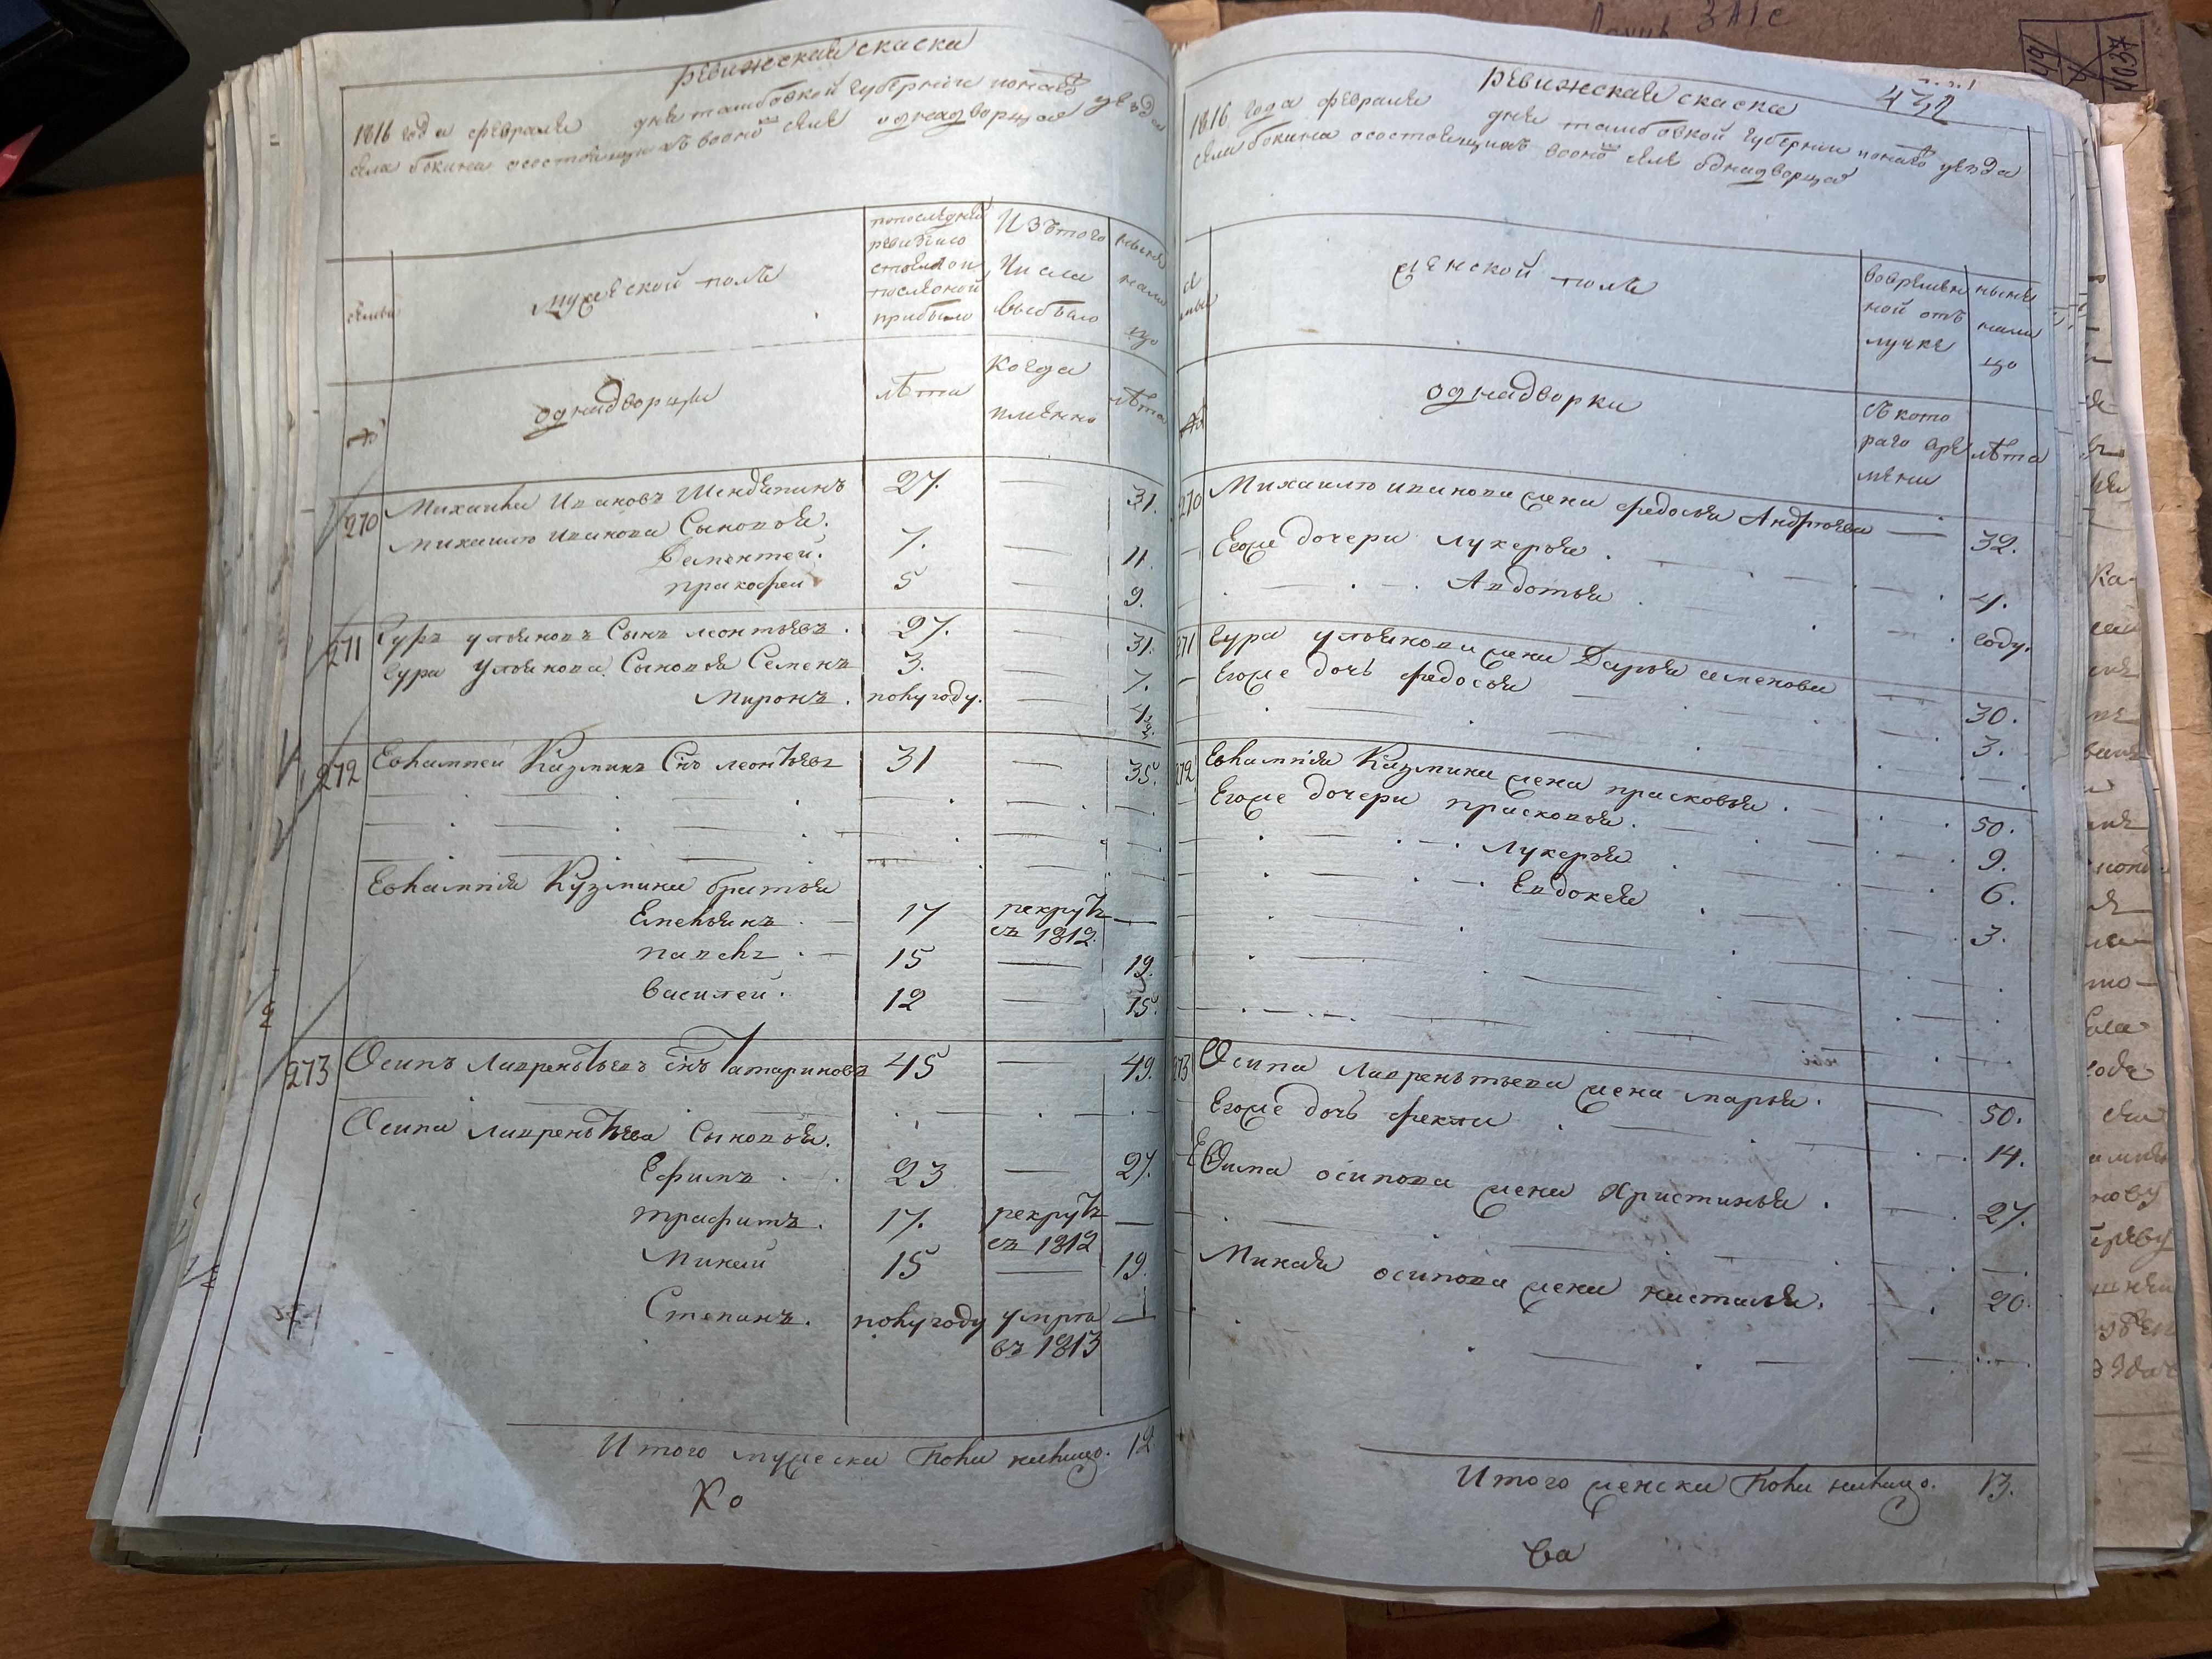 ревижская скаска
1816 года февраля дня тамбовкой губернии тогоже уезда
села бокина осостоящихъ воономъ селе однадворцах
семьи
мужеской полъ
попоследней ревизиио стояло и последной прибыло
Изтого числа выбыло
ныне налицо
№
однадворцы
лѣта
когда именно
лѣта
270 Михаила Ивановъ Шендяпинъ 27. — 31.
Михаило иванова Сыновья.
Дементей. 7. — 11.
пракофеи 5 — 9.
271 Гуръ ульяновъ Сынъ леонтьевъ. 27. — 31.
Гура Ульянова Сыновья Семенъ 3. — 7.
Миронъ. полугоду. — 4½.
272 Евлампеи Кузминъ Снъ леонтьевъ 31 — 35.
Евлампия Кузмина братья
Емельянъ 17 рекрутъ съ 1812. —
павелъ 15 — 19.
василей. 12 — 15.
273 Осипъ Лавреньтьевъ снъ Татариновъ 45 — 49.
Осипа лавреньтьева сыновья.
Ефимъ 23 — 27.
трафимъ. 17. рекрутъ съ 1812 —
Минай 15 — 19.
Степанъ. полугоду умрта въ 1813 —
Итого мужеска пола налицо. 12
Ко
ревижская скаска
1816 года февраля дня тамбовкой губернии тогоже уезда
села бокина осостоящихъ воономъ селе однадворцах
женской полъ
вовремянной отълучке
ныне налицо
№
однадворки
съкотораго времени
лѣта
270 Михаило иванова жена федосья Андреева — 32.
Егоже дочери лукерья. 4.
Авдотья году.
271 Гура ульянова жена Дарья семенова 30.
Егоже дочь федосья 3.
272 Евлампия Кузмина жена прасковья. 50.
Егоже дочери прасковья. 9.
Лукерья 6.
Евдокея 3.
273 Осипа Лавреньтьева жена марья. 50.
Егоже дочь фекла 14.
Ефима осипова жена Христинья. 27.
Миная осипова жена наталья. 20.
Итого женска пола налицо. 13.
ва